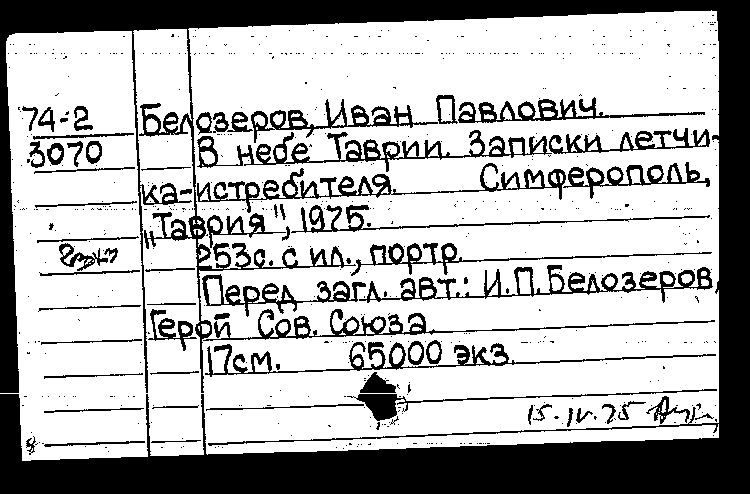 74-2 Белозеров, Иван Павлович.
3070 В небе Таврии. Записки летчи-
ка-истребителя. Симферополь,
„Таврия", 1975.
253с. с ил., портр.
Перед загл. авт.: И.П.Белозеров,
Герой Сов. Союза.
17см. 65000 экз.
15.IV.75